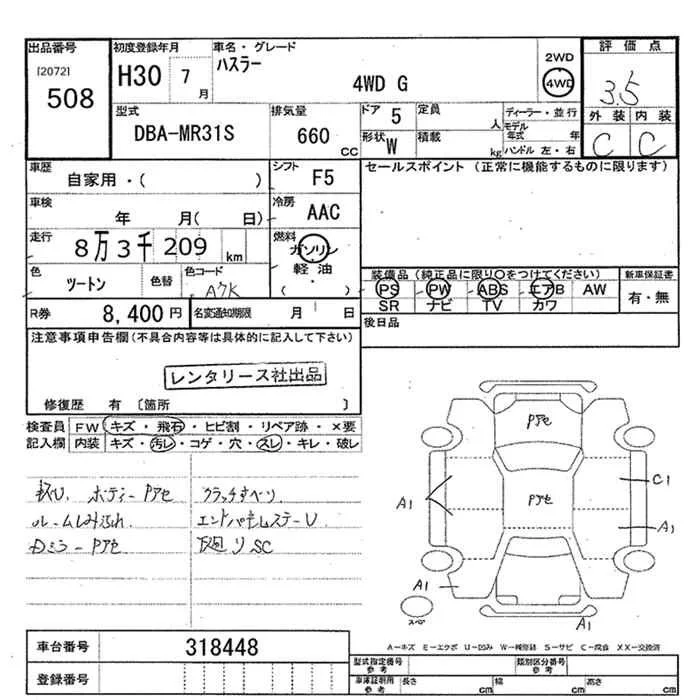 出品番号
[2072]
508
初度登録年月
H30 7月
車名・グレード
ハスラー
4WD G
2WD
4WD
評価点
3.5
外装 内装
C C
型式
DBA-MR31S
排気量
660 CC
ドア 5
定員 人
形状 W
積載 kg
ディーラー・並行
モデル年式 年
ハンドル 左・右
車歴
自家用・( )
シフト F5
セールスポイント (正常に機能するものに限ります)
車検
年 月( 日)
冷房 AAC
走行
8万3千209 km
燃料
ガソリン
軽油
( ・ )
色
ツートン
色替
色コード
A7K
装備品 (純正品に限り○をつけてください)
PS PW ABS エアB AW
SR ナビ TV カワ
新車保証書
有・無
R券 8,400円
名変通知期限 月 日
後日品
注意事項申告欄 (不具合内容等は具体的に記入して下さい)
レンタリース社出品
修復歴 有 〔箇所 〕
検査員記入欄
FW キズ・飛石・ヒビ割・リペア跡・×要
内装 キズ・汚レ・コゲ・穴・スレ・キレ・破レ
ボディーPアセ
クラッチすべリ
ルームしみ汚れ
DミラーPアセ
SC
Pアセ
Pアセ
A1
C1
A1
A1
A1
スペア
A-キズ E-エクボ U-凹ミ W-補修跡 S-サビ C-腐食 XX-交換済
車台番号 318448
登録番号
型式指定番号 参考
類別区分番号 参考
車庫証明用 参考
長さ cm
幅 cm
高さ cm